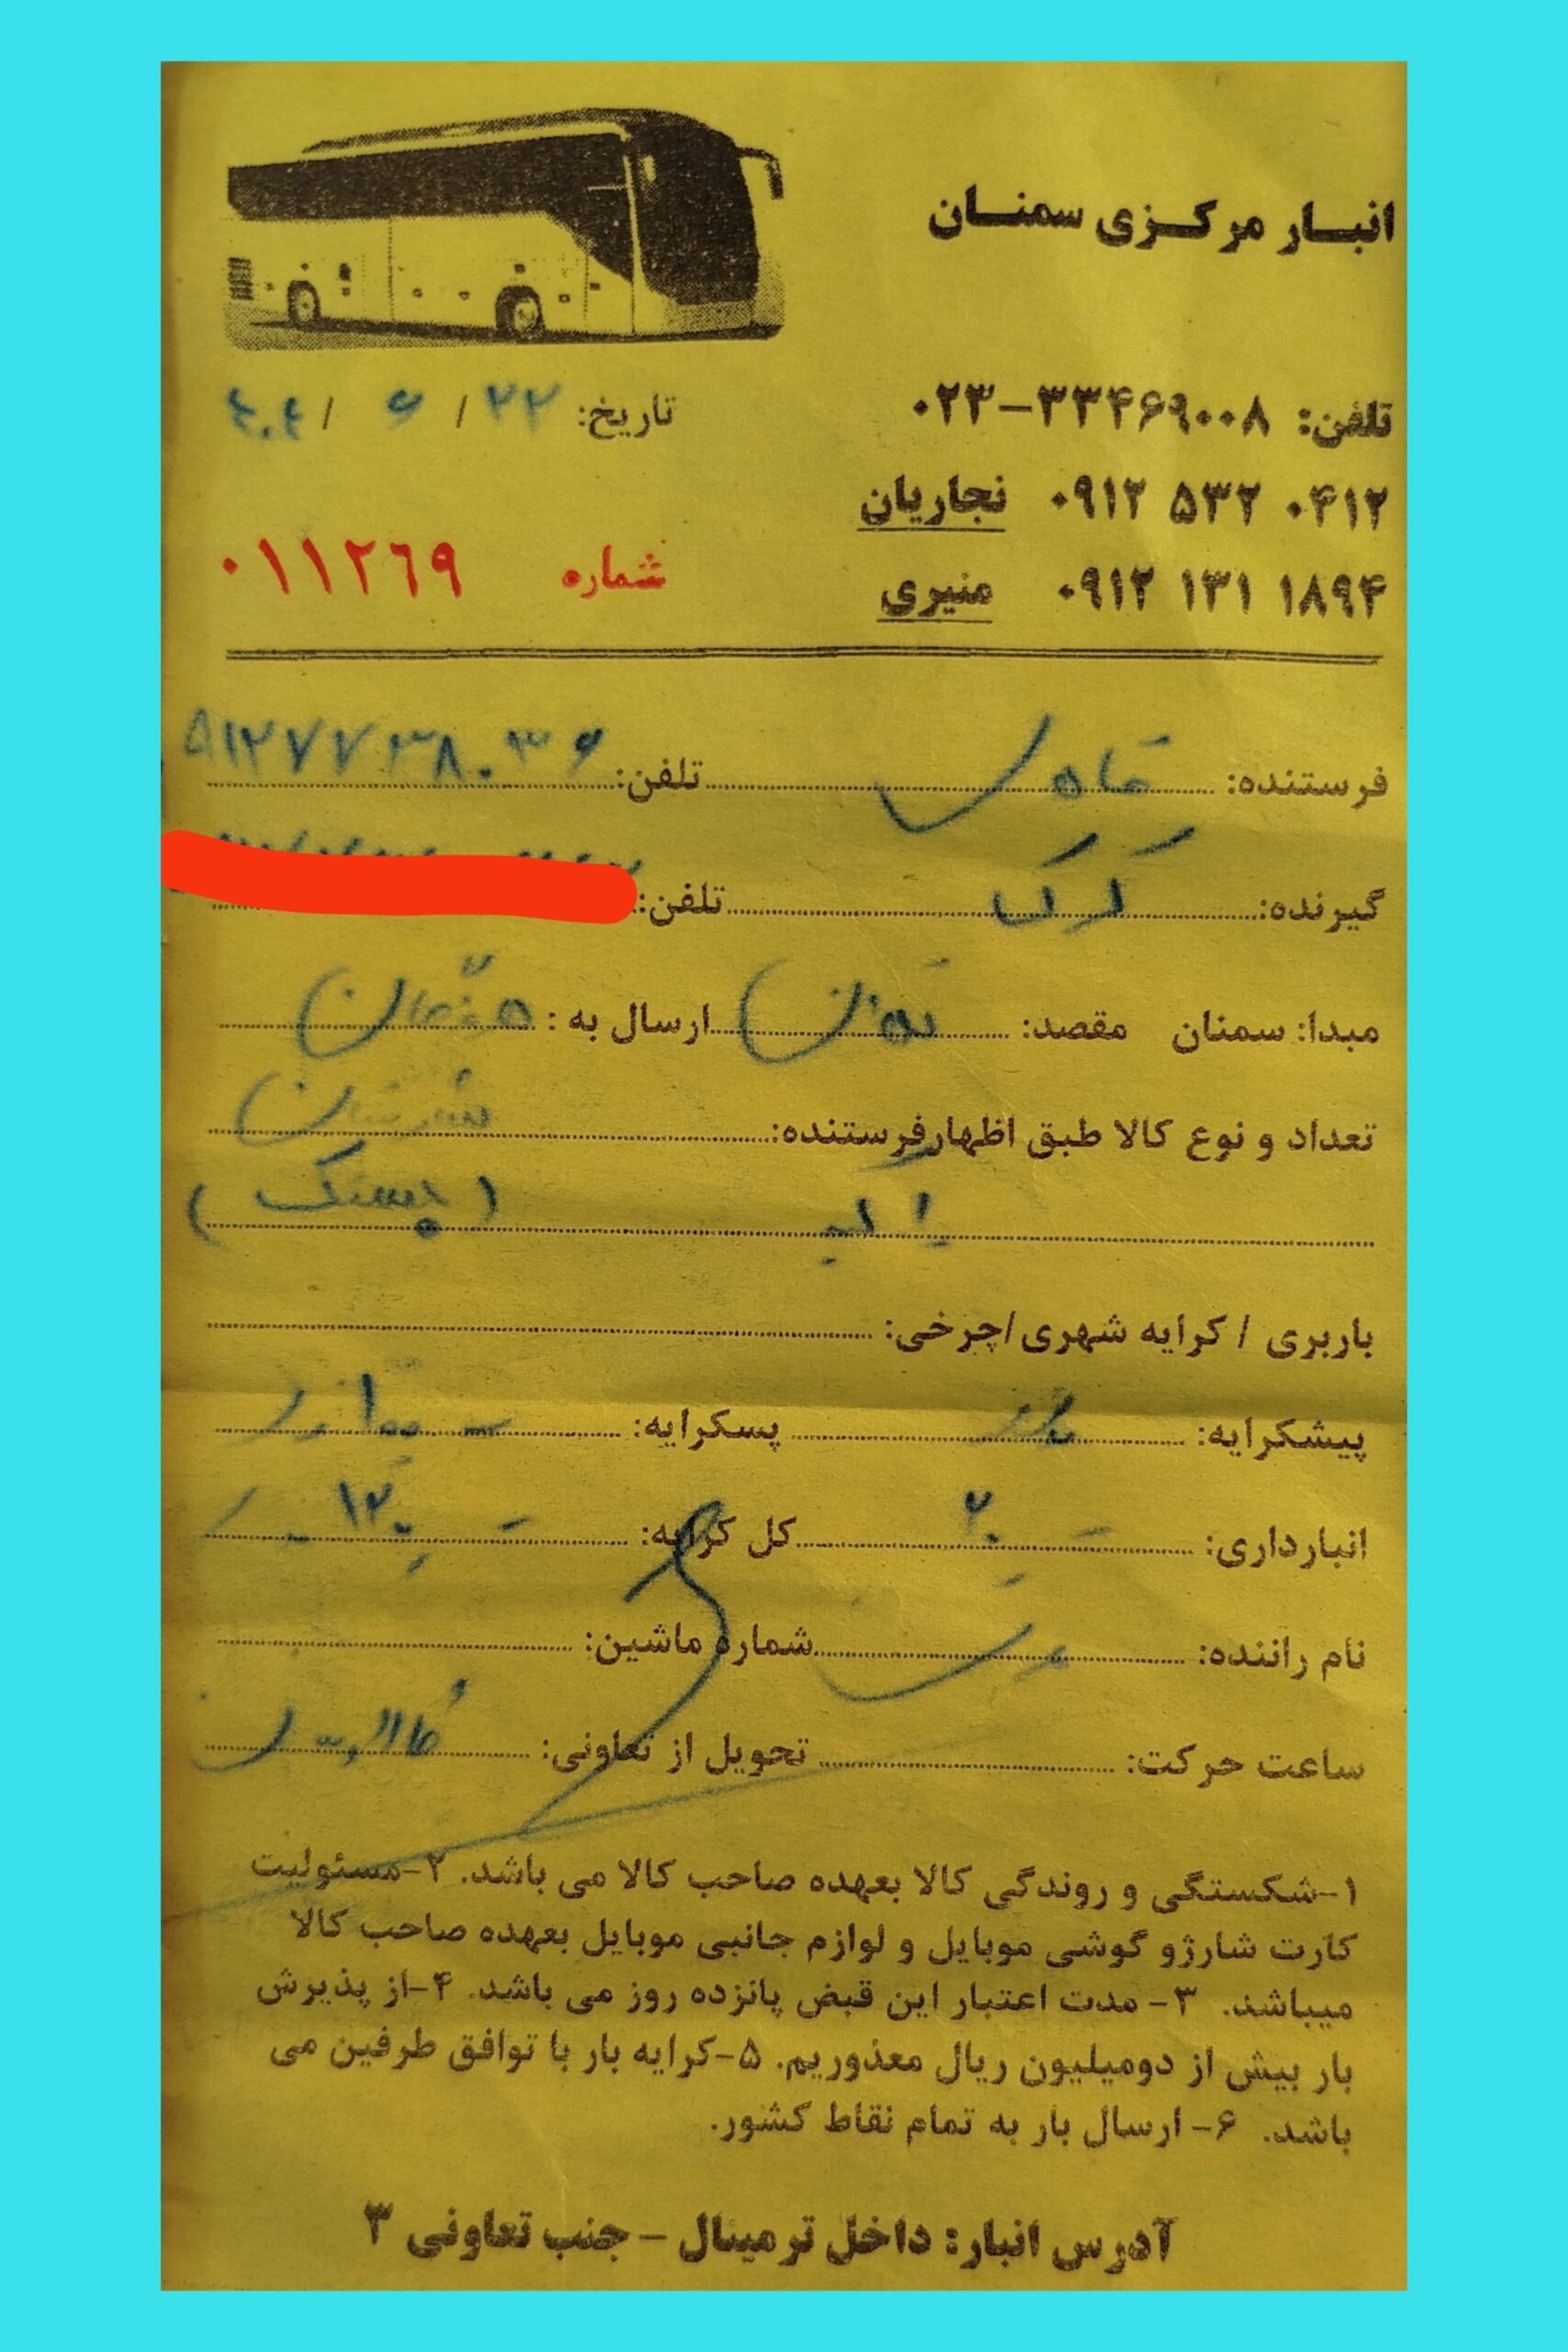 انبار مرکزی سمنان
تلفن: ۰۲۳-۳۳۴۶۹۰۰۸
تاریخ: ۲۲ / ۶ / ۴۰۴
۰۹۱۲ ۵۳۲ ۰۴۱۲ نجاریان
شماره ۰۱۱۲۶۹
۰۹۱۲ ۱۳۱ ۱۸۹۴ منیری
فرستنده: تلفن:
گیرنده: تلفن:
مبدا: سمنان مقصد: تهران ارسال به :
تعداد و نوع کالا طبق اظهارفرستنده:
باربری / کرایه شهری/چرخی:
پیشکرایه: پسکرایه:
انبارداری: ۲۰ کل کرایه: ۱۲۰
نام راننده: شماره ماشین:
ساعت حرکت: تحویل از تعاونی:
۱-شکستگی و روندگی کالا بعهده صاحب کالا می باشد. ۲-مسئولیت
کارت شارژو گوشی موبایل و لوازم جانبی موبایل بعهده صاحب کالا
میباشد. ۳- مدت اعتبار این قبض پانزده روز می باشد. ۴-از پذیرش
بار بیش از دومیلیون ریال معذوریم. ۵-کرایه بار با توافق طرفین می
باشد. ۶- ارسال بار به تمام نقاط کشور.
آدرس انبار: داخل ترمینال – جنب تعاونی ۳